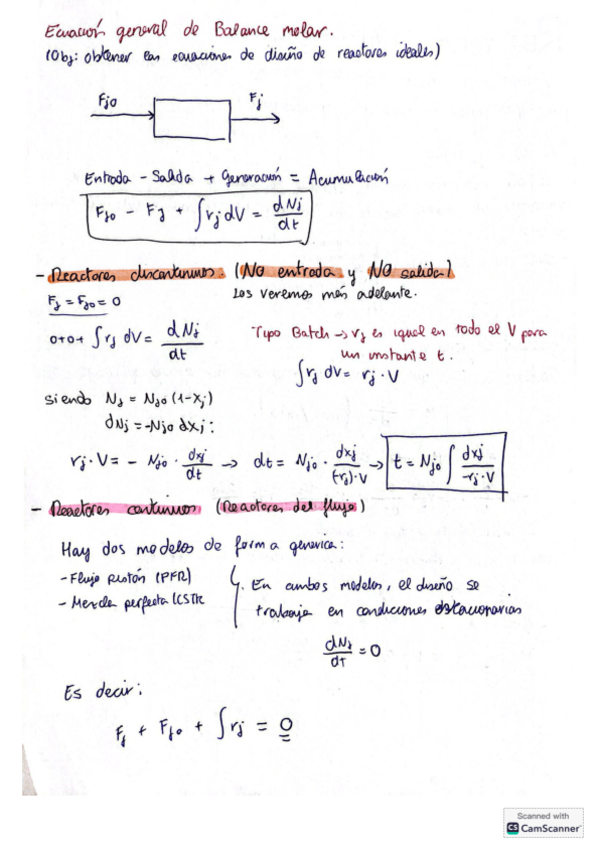 Ecuación general de Balance molar.
(Obj: obtener las ecuaciones de diseño de reactores ideales)
Fjo
Fj
Entrada - Salida + Generación = Acumulación
Fjo - Fj + ∫rj dV = dNj/dt
- Reactores discontinuos: (NO entrada y NO salida)
Los veremos más adelante.
Fj = Fjo = 0
0+0+ ∫rj dV = dNj/dt
Tipo Batch → rj es igual en todo el V para
un instante t.
∫rj dV = rj·V
siendo Nj = Njo (1-xj)
dNj = -Njo dxj:
rj·V = - Njo · dxj/dt → dt = Njo · dxj/(-rj)·V → t = Njo ∫ dxj/-rj·V
- Reactores continuos (Reactores del flujo)
Hay dos modelos de forma generica:
- Flujo Pistón (PFR)
- Mezcla perfecta (CSTR
En ambos modelos, el diseño se
trabaja en condiciones estacionarias
dNj/dt = 0
Es decir:
Fj + Fjo + ∫rj = 0
Scanned with
CS CamScanner